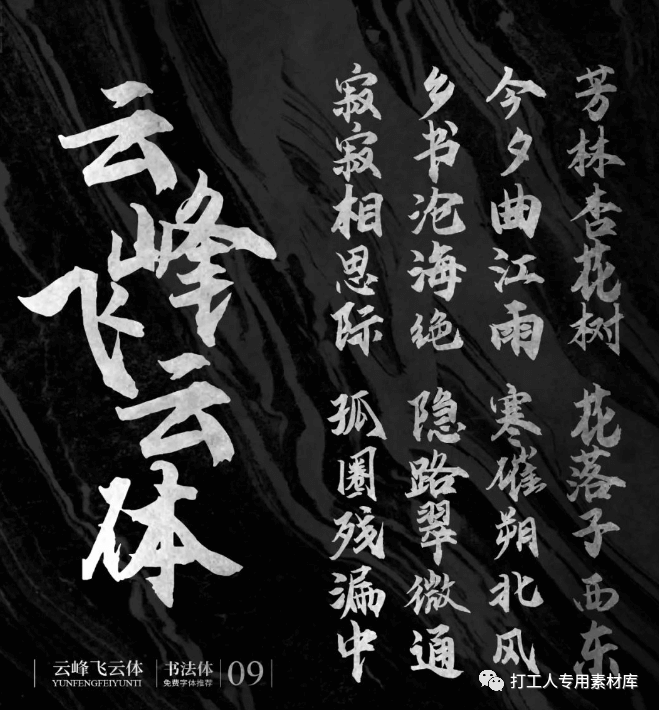 云峰飞云体
芳林杏花树
花落子西东
今夕曲江雨
寒催朔北风
乡书沧海绝
隐路翠微通
寂寂相思际
孤圈残漏中
云峰飞云体
YUNFENGFEIYUNTI
书法体
免费字体推荐
09
打工人专用素材库